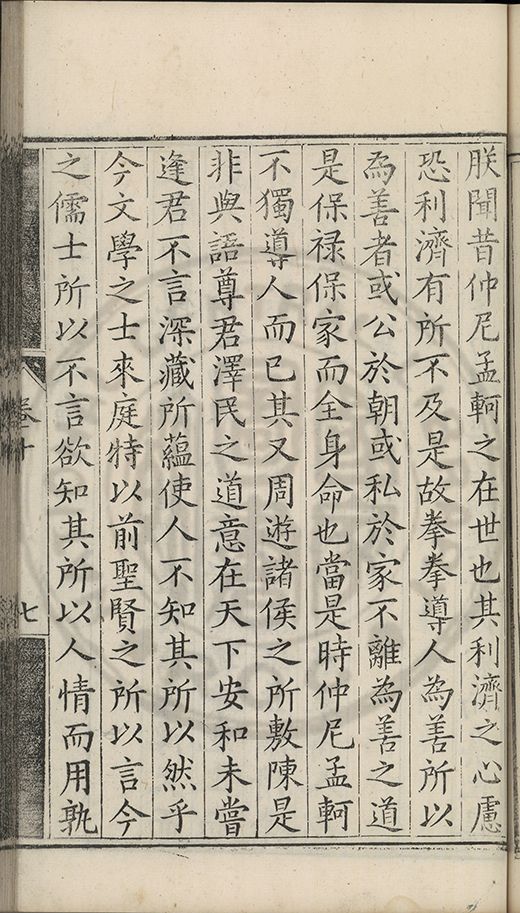 朕聞昔仲尼孟軻之在世也其利濟之心慮
恐利濟有所不及是故拳拳導人為善所以
為善者或公於朝或私於家不離為善之道
是保禄保家而全身命也當是時仲尼孟軻
不獨導人而已其又周遊諸侯之所敷陳是
非與語尊君澤民之道意在天下安和未嘗
逢君不言深藏所蘊使人不知其所以然乎
今文學之士來庭特以前聖賢之所以言今
之儒士所以不言欲知其所以人情而用孰
卷十
七